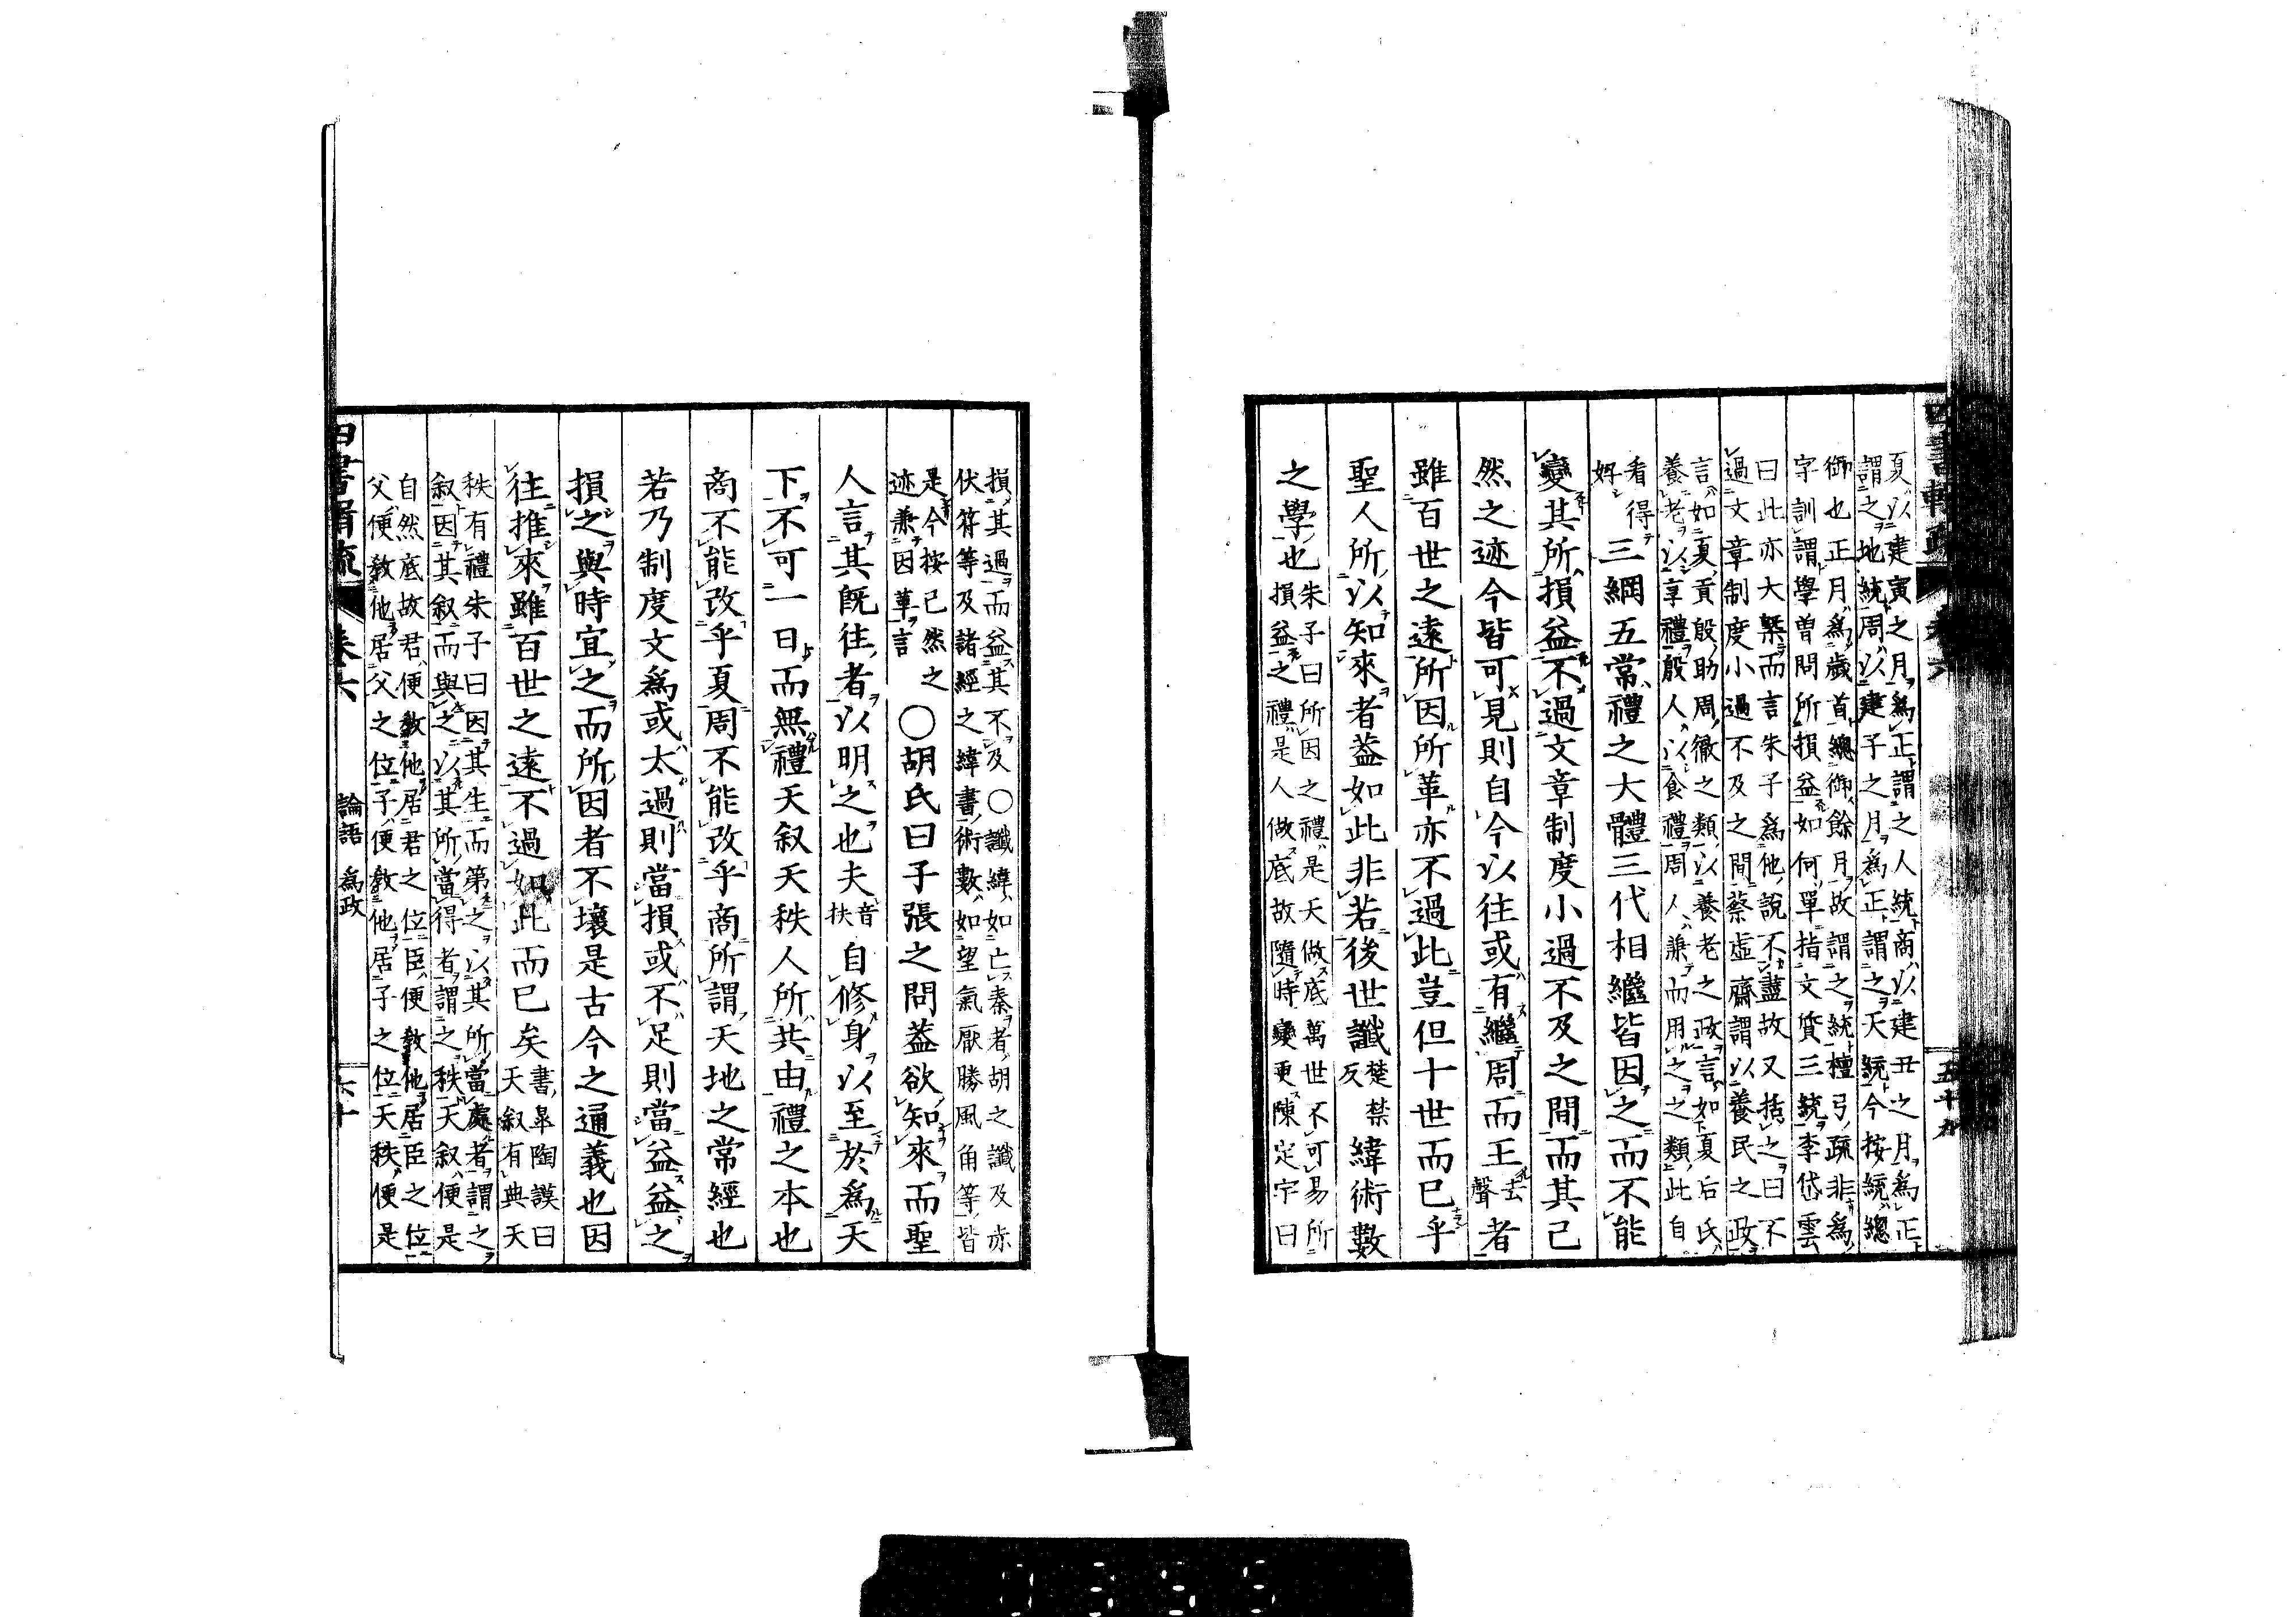 夏以建寅之月爲正謂之人統商以建丑之月爲正
謂之地統周以建子之月爲正謂之天統今按統總
御也正月爲歲首總御餘月故謂之統檀弓疏非爲
字訓謂學曾問所損益如何單指文質三統李岱雲
曰此亦大槩而言朱子爲他說不盡故又括之曰不
過文章制度小過不及之間蔡虛齋謂以養民之政
言如夏貢殷助周徹之類以養老之政言如夏后氏
養老以享禮殷人以食禮周人兼而用之之類此自
看得
好
三綱五常禮之大體三代相繼皆因之而不能
變其所損益不過文章制度小過不及之間而其已
然之迹今皆可見則自今以往或有繼周而王去聲者
雖百世之遠所因所革亦不過此豈但十世而已乎
聖人所以知來者蓋如此非若後世讖楚禁反緯術數
之學也
朱子曰所因之禮是天做底萬世不可易所
損益之禮是人做底故隨時變更陳定宇曰
損其過而益其不及○讖緯如亡秦者胡之讖及赤
伏符等及諸經之緯書術數如望氣厭勝風角等皆
是今按已然之
迹兼因革言
○胡氏曰子張之問蓋欲知來而聖
人言其既往者以明之也夫音扶自修身以至於爲天
下不可一日而無禮天叙天秩人所共由禮之本也
商不能改乎夏周不能改乎商所謂天地之常經也
若乃制度文爲或太過則當損或不足則當益益之
損之與時宜之而所因者不壞是古今之通義也因
往推來雖百世之遠不過如此而已矣
書皐陶謨曰
天叙有典天
秩有禮朱子曰因其生而第之以其所當處者謂之
叙因其叙而與之以其所當得者謂之秩天叙便是
自然底故君便教他居君之位臣便教他居臣之位
父便教他居父之位子便教他居子之位天秩便是
論語 爲政